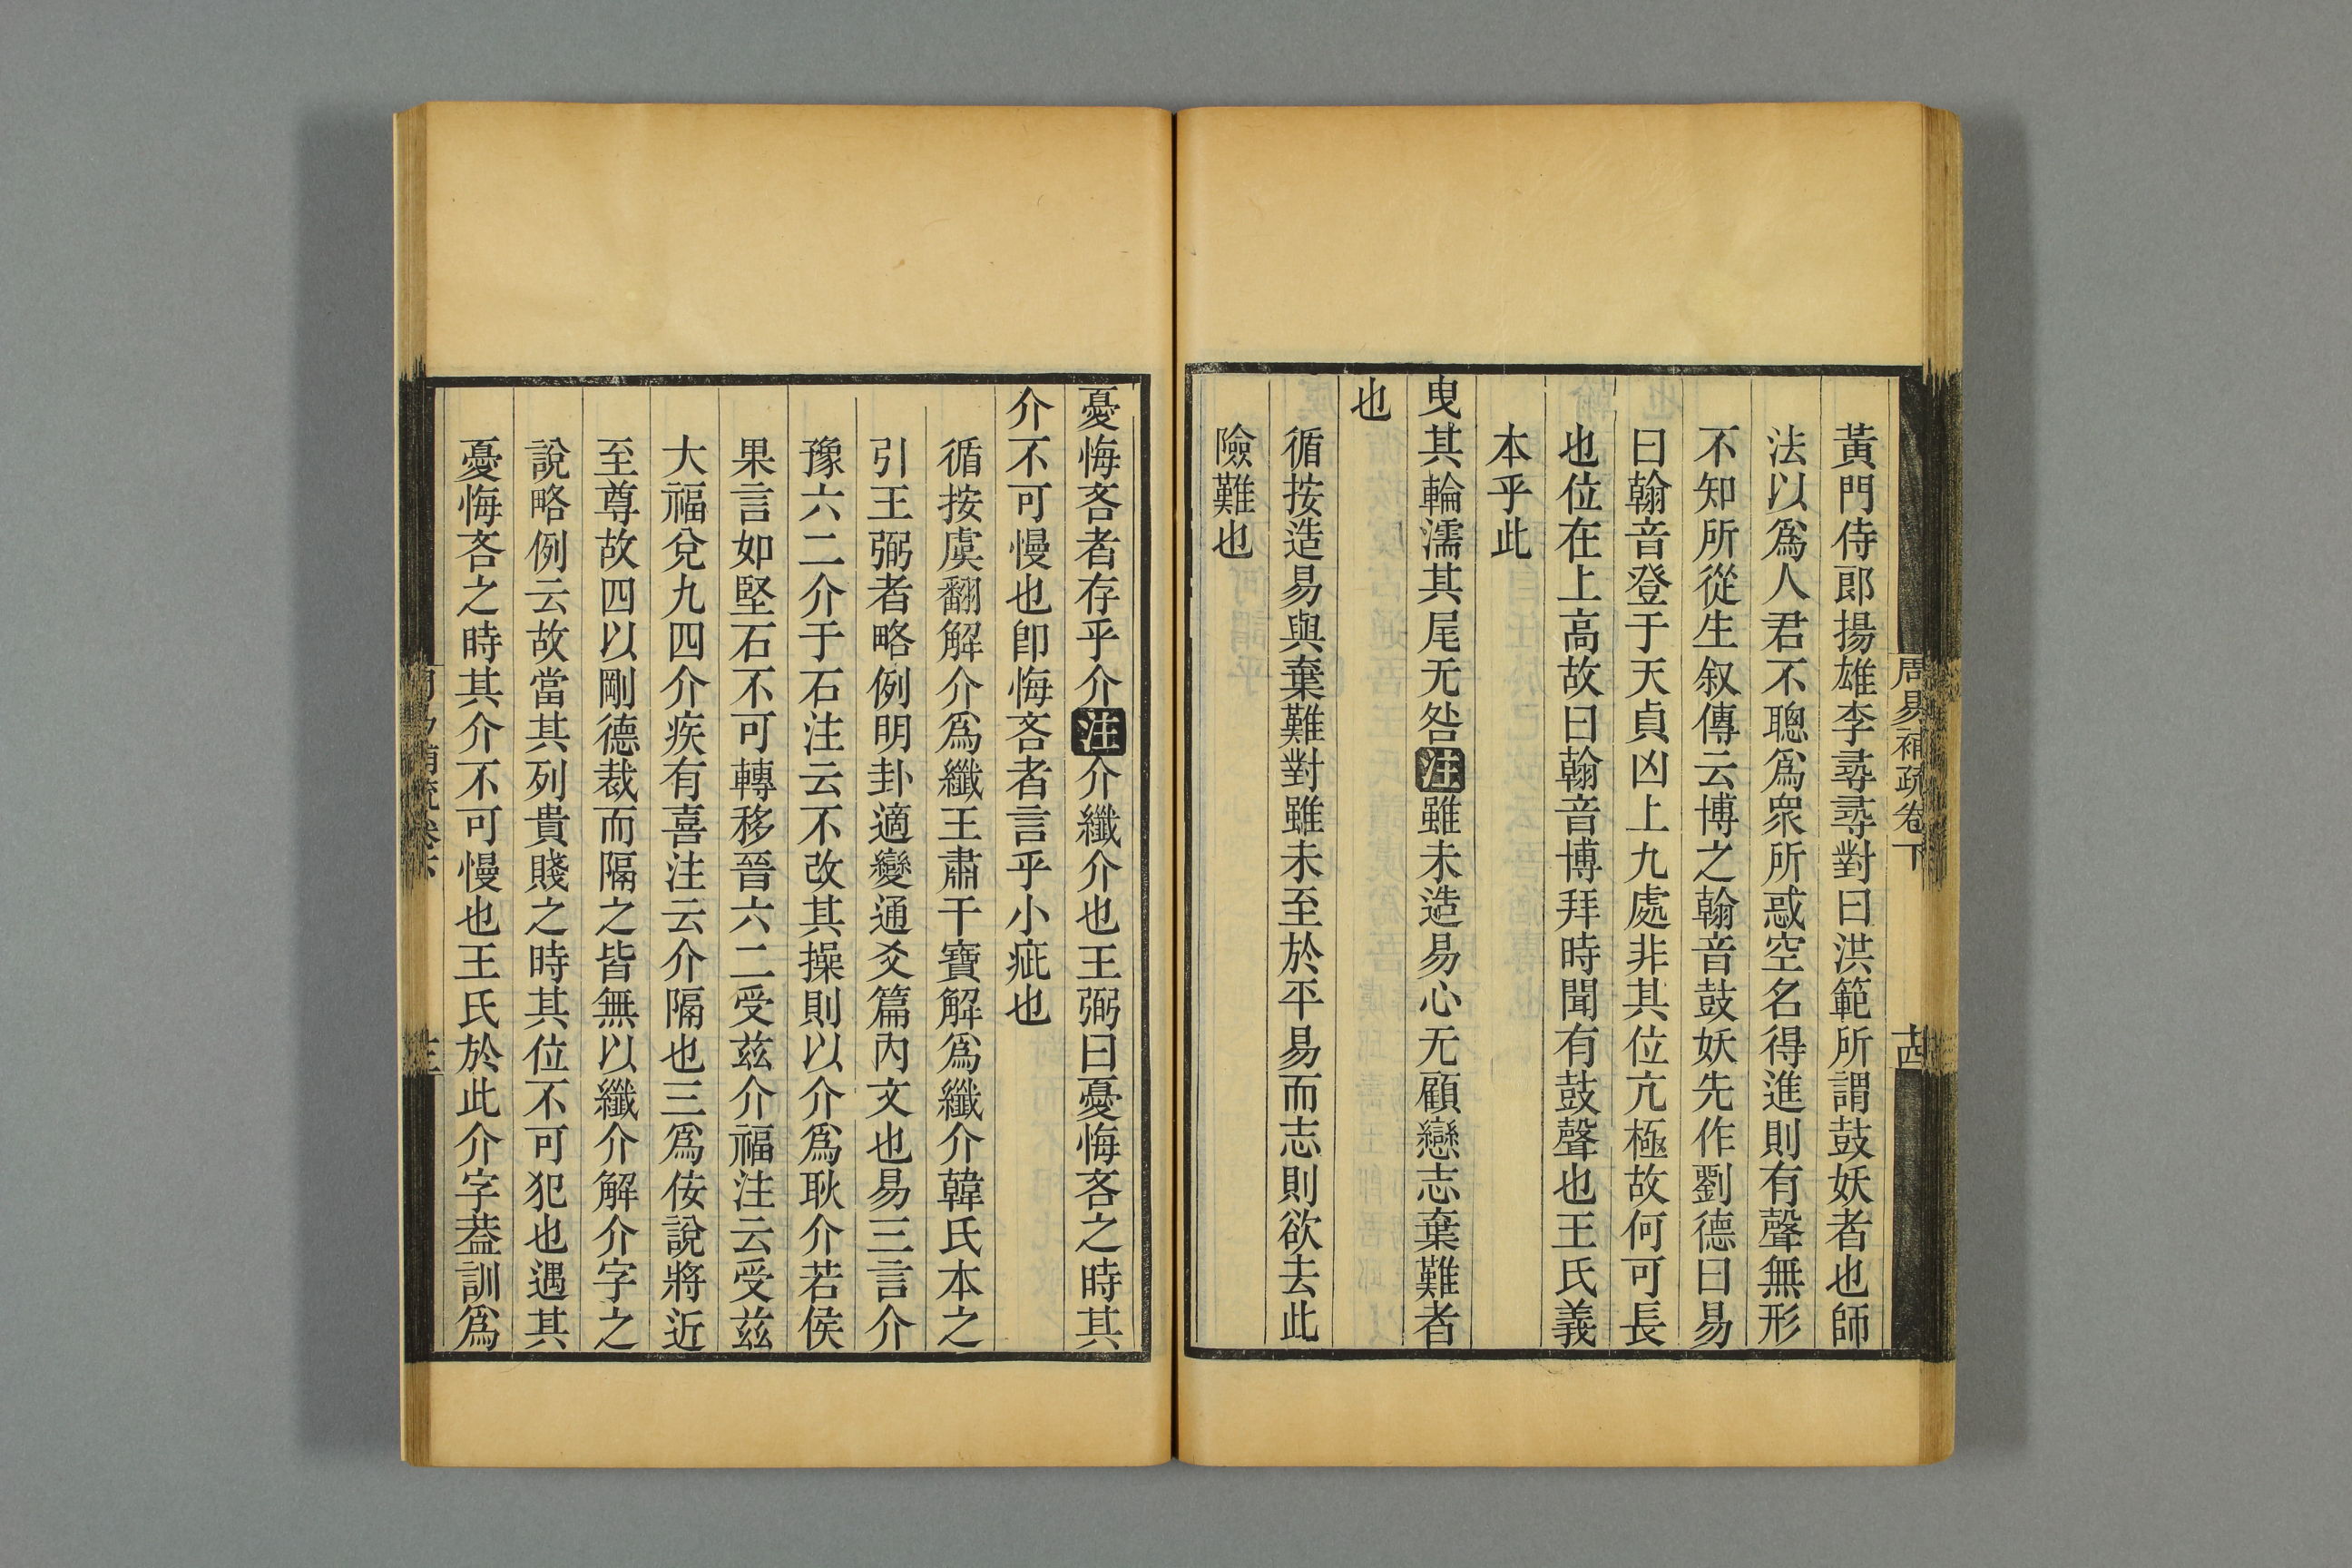 周易補疏卷下
十四
黃門侍郎揚雄李尋尋對曰洪範所謂鼓妖者也師
法以爲人君不聰爲衆所惑空名得進則有聲無形
不知所從生叙傳云博之翰音鼓妖先作劉德曰易
曰翰音登于天貞凶上九處非其位亢極故何可長
也位在上高故曰翰音博拜時聞有鼓聲也王氏義
本乎此
曳其輪濡其尾无咎注雖未造易心无顧戀志棄難者
也
循按造易與棄難對雖未至於平易而志則欲去此
險難也
憂悔吝者存乎介注介纖介也王弼曰憂悔吝之時其
介不可慢也卽悔吝者言乎小疵也
循按虞翻解介爲纖王肅干寶解爲纖介韓氏本之
引王弼者略例明卦適變通爻篇內文也易三言介
豫六二介于石注云不改其操則以介爲耿介若侯
果言如堅石不可轉移晉六二受茲介福注云受茲
大福兌九四介疾有喜注云介隔也三爲佞說將近
至尊故四以剛德裁而隔之皆無以纖介解介字之
說略例云故當其列貴賤之時其位不可犯也遇其
憂悔吝之時其介不可慢也王氏於此介字葢訓爲